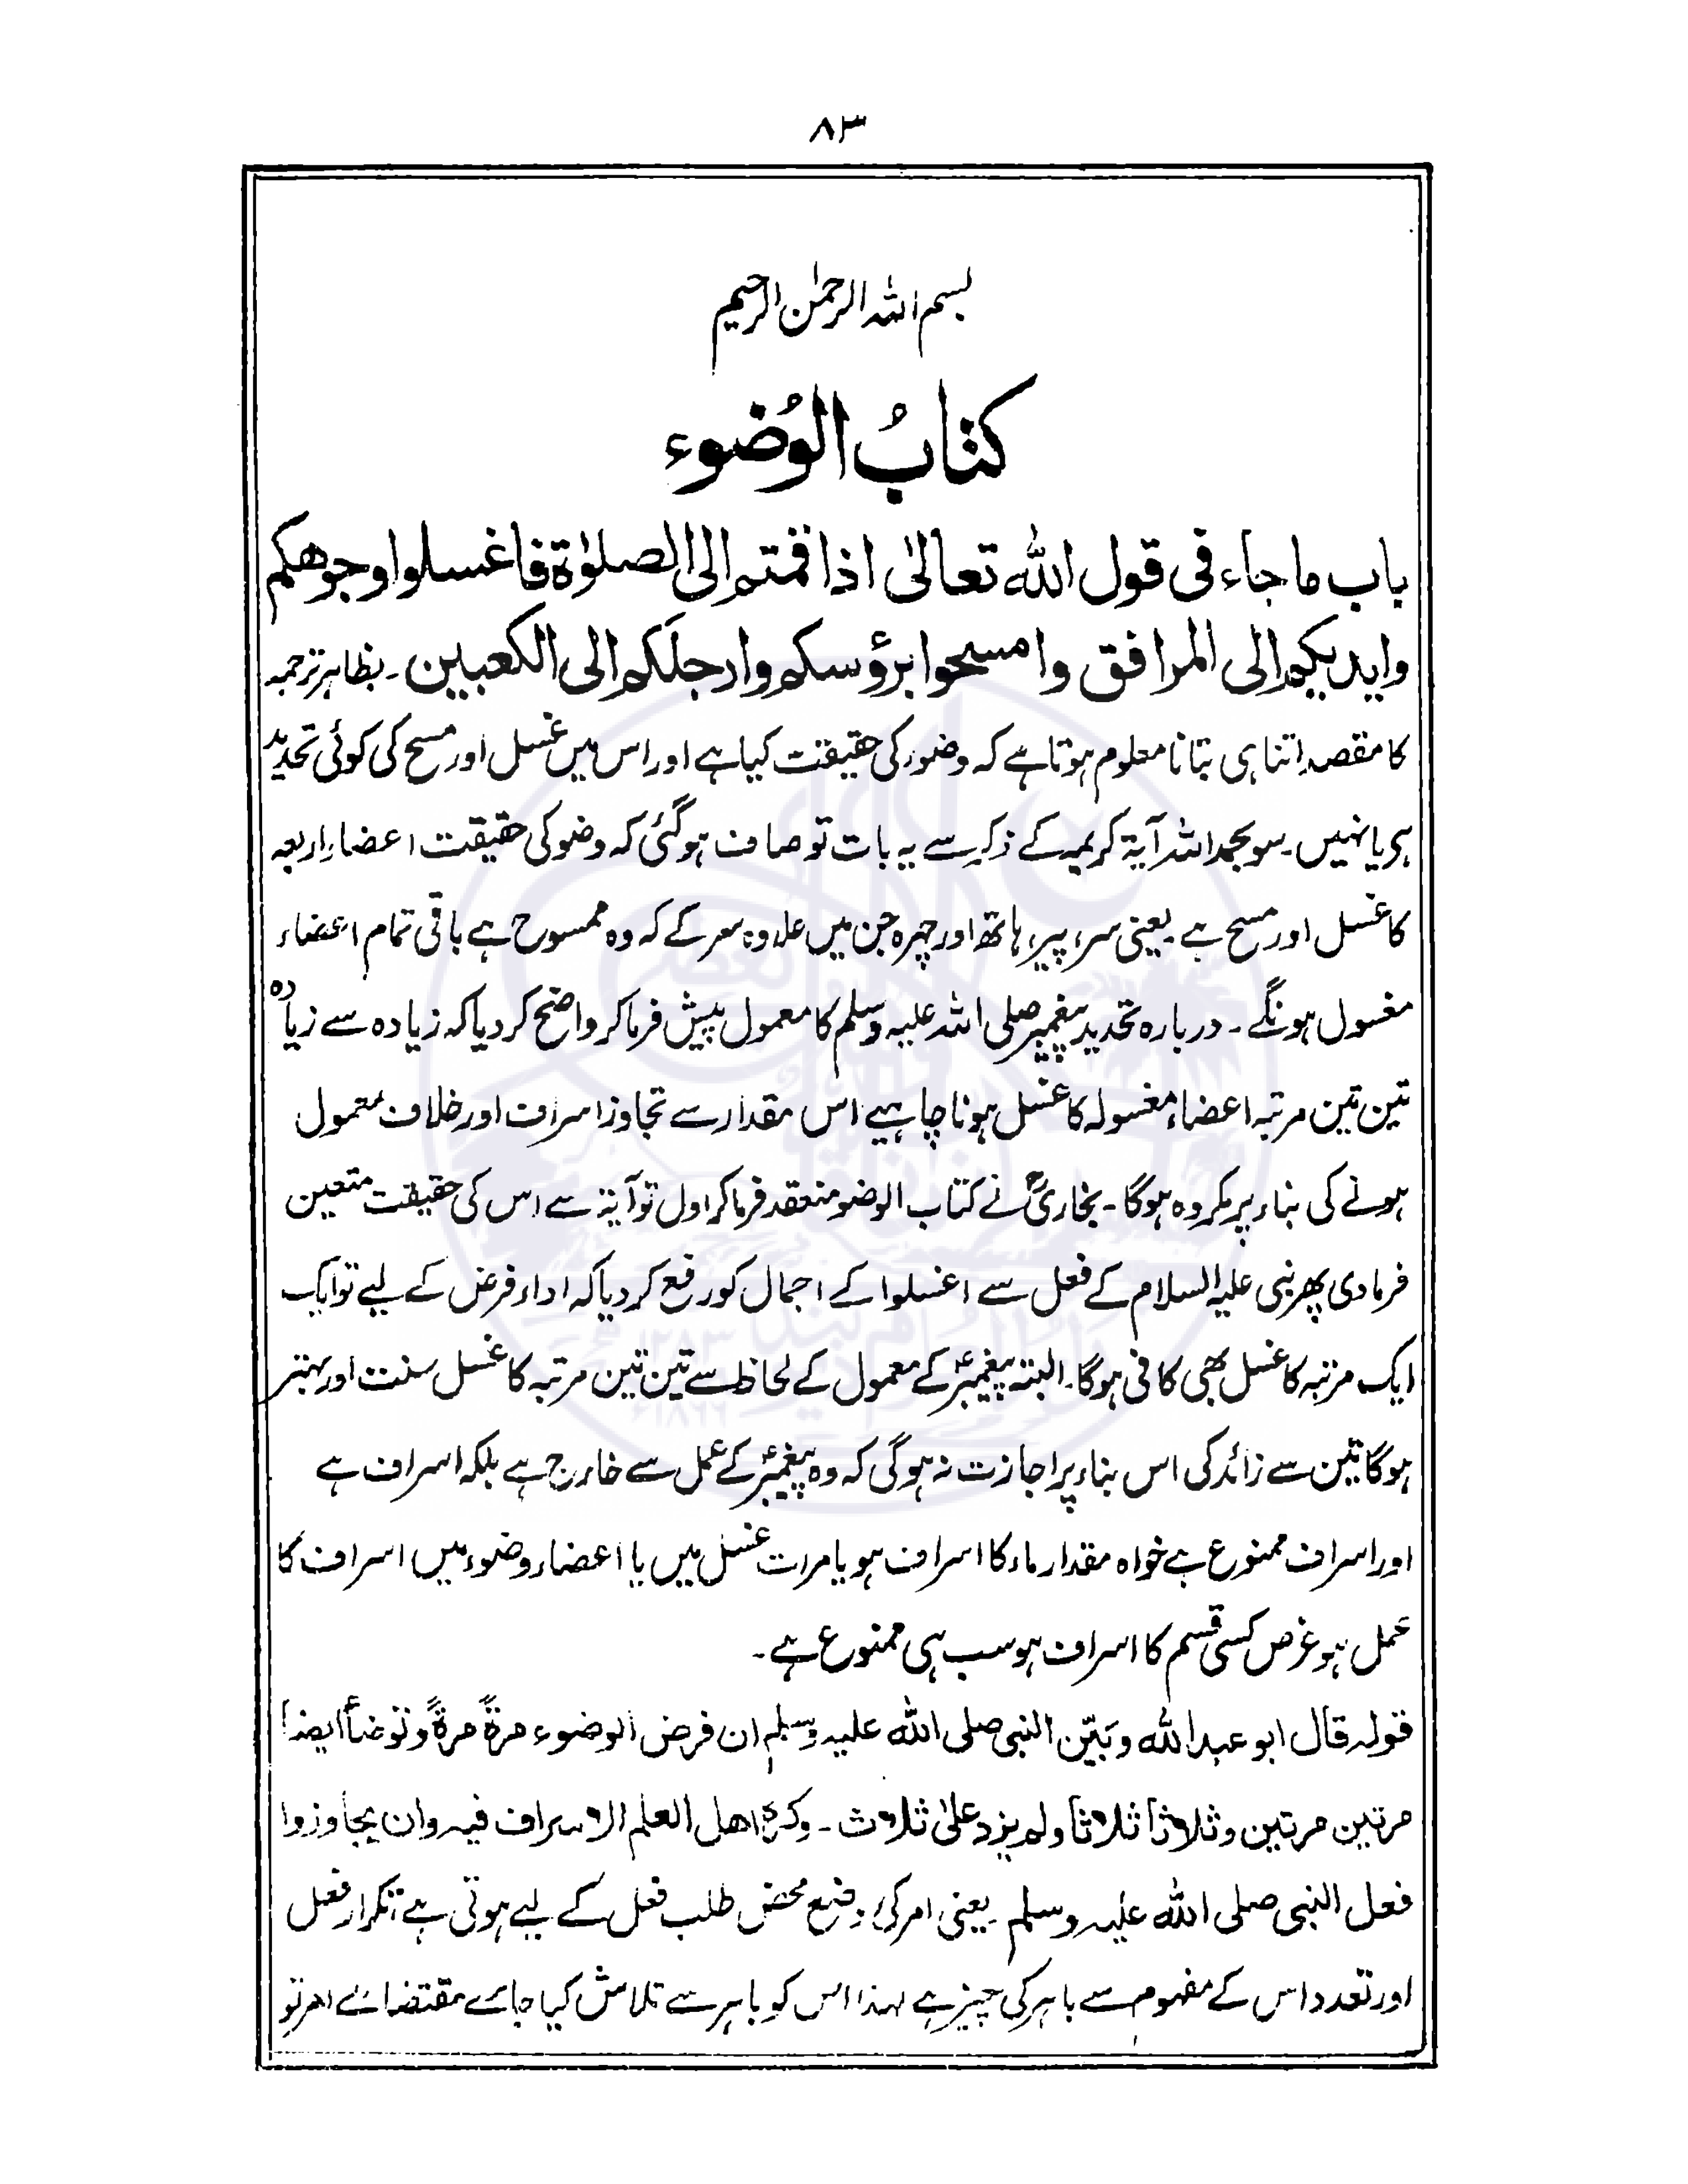 ۸۳
بسم اللہ الرحمٰن الرحیم
کتابُ الوُضوء
باب ما جاء فی قول اللہ تعالیٰ اذا قمتم الی الصلوٰۃ فاغسلوا وجوھکم
وایدیکم الی المرافق وامسحوا برؤسکم وارجلَکم الی الکعبین ۔ بظاہر ترجمہ
کا مقصد اتنا ہی بتانا معلوم ہوتا ہے کہ وضور کی حقیقت کیا ہے اور اس میں غسل اور مسح کی کوئی تحدید
ہی یا نہیں۔ سو بحمد اللہ آیۃ کریمہ کے ذکر سے یہ بات تو صاف ہوگئی کہ وضو کی حقیقت اعضاء اربعہ
کا غسل اور مسح ہے ۔ یعنی سر، پیر، ہاتھ اور چہرہ جن میں علاوہ سر کے کہ وہ ممسوح ہے باقی تمام اعضاء
مغسول ہونگے ۔ دربارہ تحدید پیغمبر صلی اللہ علیہ وسلم کا معمول پیش فرما کر واضح کر دیا کہ زیادہ سے زیادہ
تین تین مرتبہ اعضاء مغسولہ کا غسل ہونا چاہیے اس مقدار سے تجاوز اسراف اور خلاف معمول
ہونے کی بناء پر مکروہ ہوگا ۔ بخاریؒ نے کتاب الوضو منعقد فرما کر اول تو آیۃ سے اس کی حقیقت متعین
فرما دی پھر نبی علیہ السلام کے فعل سے اغسلوا کے اجمال کو رفع کر دیا کہ اداء فرض کے لیے تو ایک
ایک مرتبہ کا غسل بھی کافی ہوگا۔ البتہ پیغمبرؑ کے معمول کے لحاظ سے تین تین مرتبہ کا غسل سنت اور بہتر
ہوگا تین سے زائد کی اس بناء پر اجازت نہ ہوگی کہ وہ پیغمبرؑ کے عمل سے خارج ہے بلکہ اسراف ہے
اور اسراف ممنوع ہے خواہ مقدار ماء کا اسراف ہو یا مرات غسل میں یا اعضاء وضوء میں اسراف کا
عمل ہو غرض کسی قسم کا اسراف ہو سب ہی ممنوع ہے ۔
قولہ قال ابو عبد اللہ وبَیّن النبی صلی اللہ علیہ وسلم ان فرض الوضوء مرۃً مرۃً وتوضأ ایضا
مرتین مرتین وثلاثاً ثلاثا ولم یزد علیٰ ثلاث ۔ وکرہ اھل العلم الاسراف فیہ وان یجاوزوا
فعل النبی صلی اللہ علیہ وسلم ۔ یعنی امر کی وضع محض طلب فعل کے لیے ہوتی ہے تکرار فعل
اور تعدد اس کے مفہوم سے باہر کی چیز ہے لہذا اس کو باہر سے تلاش کیا جائے مقتضائے امر تو